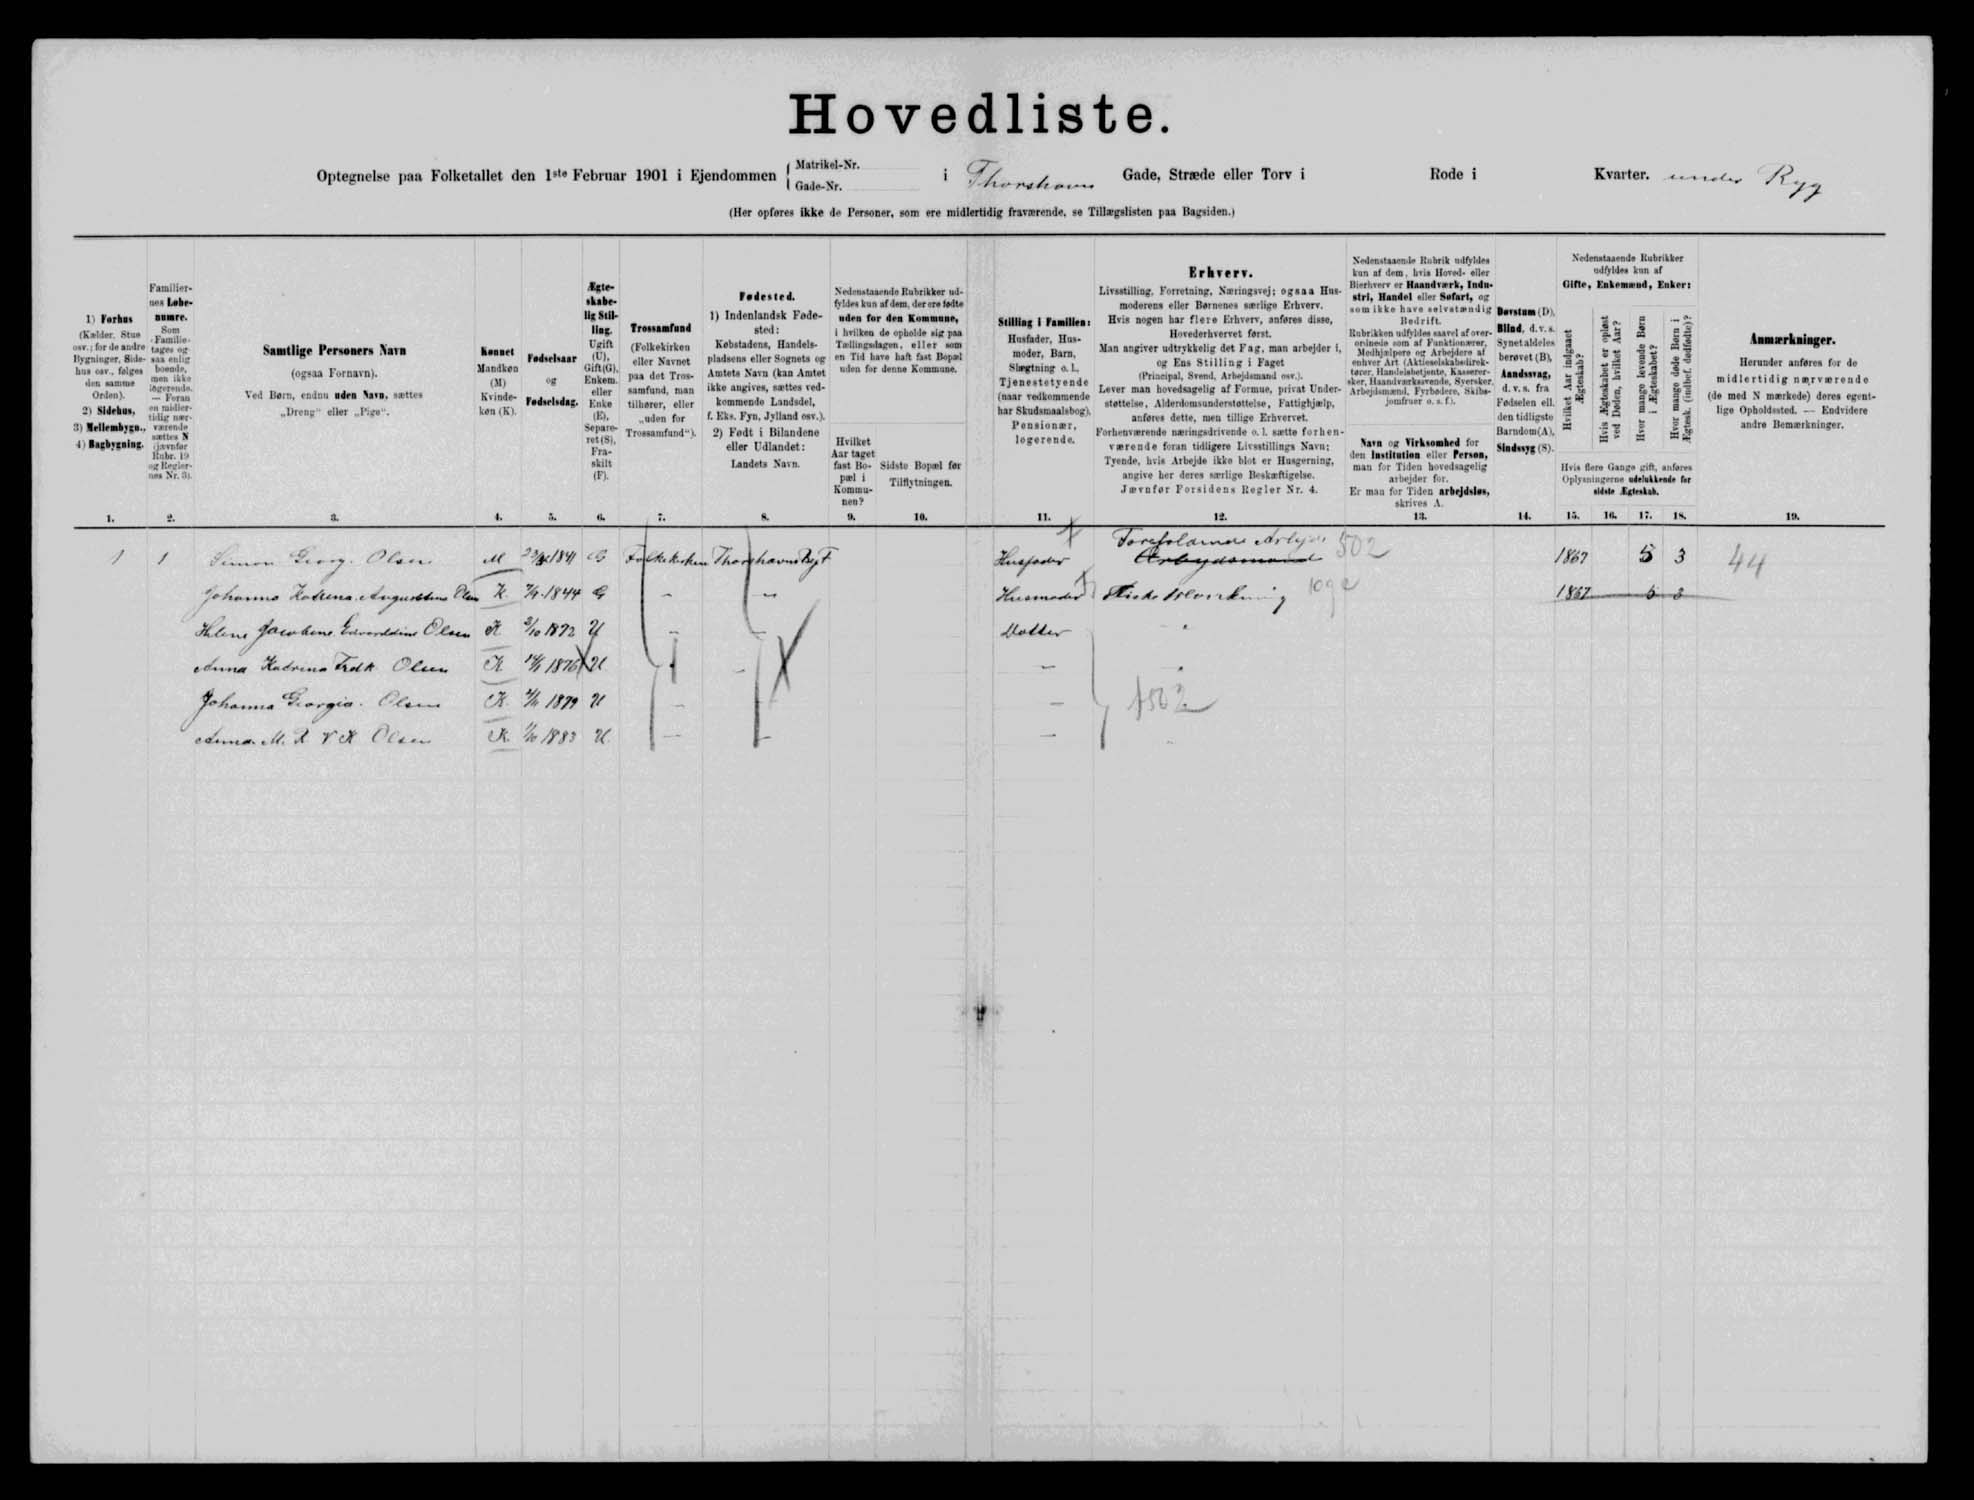 Hovedliste.
Optegnelse paa Folketallet den 1ste Februar 1901 i Ejendommen { Matrikel-Nr. Gade-Nr. i Thorshavn Gade, Stræde eller Torv i Rode i Kvarter. under Ryg
(Her opføres ikke de Personer, som ere midlertidig fraværende, se Tillægslisten paa Bagsiden.)
1) Forhus
(Kælder, Stue
osv.; for de andre
Bygninger, Side-
hus osv., følges
den samme
Orden).
2) Sidehus,
3) Mellembygn.,
4) Bagbygning.
Familier-
nes Løbe-
numre.
Som
Familie
tages og-
saa enlig
boende,
men ikke
logerende.
— Foran
en midler-
tidig nær-
værende
sættes N
(jævnfør
Rubr. 19
og Regler-
nes Nr. 3).
Samtlige Personers Navn
(ogsaa Fornavn).
Ved Børn, endnu uden Navn, sættes
„Dreng“ eller „Pige“.
Kønnet
Mandkøn
(M)
Kvinde-
køn (K).
Fødselsaar
og
Fødselsdag.
Ægte-
skabe-
lig Stil-
ling.
Ugift
(U),
Gift(G),
Enkem.
eller
Enke
(E),
Separe-
ret (S),
Fra-
skilt
(F).
Trossamfund
(Folkekirken
eller Navnet
paa det Tros-
samfund, man
tilhører, eller
„uden for
Trossamfund“).
Fødested.
1) Indenlandsk Føde-
sted:
Købstadens, Handels-
pladsens eller Sognets og
Amtets Navn (kan Amtet
ikke angives, sættes ved-
kommende Landsdel,
f. Eks. Fyn, Jylland osv.).
2) Født i Bilandene
eller Udlandet:
Landets Navn.
Nedenstaaende Rubrikker ud-
fyldes kun af dem, der ere fødte
uden for den Kommune,
i hvilken de opholde sig paa
Tællingsdagen, eller som
en Tid have haft fast Bopæl
uden for denne Kommune.
Hvilket
Aar taget
fast Bo-
pæl i
Kommu-
nen?
Sidste Bopæl før
Tilflytningen.
Stilling i Familien:
Husfader, Hus-
moder, Barn,
Slægtning o. l.,
Tjenestetyende
(naar vedkommende
har Skudsmaalsbog),
Pensionær,
logerende.
Erhverv.
Livsstilling, Forretning, Næringsvej; ogsaa Hus-
moderens eller Børnenes særlige Erhverv.
Hvis nogen har flere Erhverv, anføres disse,
Hovederhvervet først.
Man angiver udtrykkelig det Fag, man arbejder i,
og Ens Stilling i Faget
(Principal, Svend, Arbejdsmand osv.).
Lever man hovedsagelig af Formue, privat Under-
støttelse, Alderdomsunderstøttelse, Fattighjælp,
anføres dette, men tillige Erhvervet.
Forhenværende næringsdrivende o. l. sætte forhen-
værende foran tidligere Livsstillings Navn;
Tyende, hvis Arbejde ikke blot er Husgerning,
angive her deres særlige Beskæftigelse.
Jævnfør Forsidens Regler Nr. 4.
Nedenstaaende Rubrik udfyldes
kun af dem, hvis Hoved- eller
Bierhverv er Haandværk, Indu-
stri, Handel eller Søfart, og
som ikke have selvstændig
Bedrift.
Rubrikken udfyldes saavel af over-
ordnede som af Funktionærer,
Medhjælpere og Arbejdere af
enhver Art (Aktieselskabsdirek-
tører, Handelsbetjente, Kasserer-
sker, Haandværkssvende, Syersker,
Arbejdsmænd, Fyrbødere, Skibs-
jomfruer o. s. f.).
Navn og Virksomhed for
den Institution eller Person,
man for Tiden hovedsagelig
arbejder for.
Er man for Tiden arbejdsløs,
skrives A.
Døvstum (D),
Blind, d. v. s.
Synet aldeles
berøvet (B),
Aandssvag,
d. v. s. fra
Fødselen ell.
den tidligste
Barndom(A),
Sindssyg (S).
Nedenstaaende Rubrikker
udfyldes kun af
Gifte, Enkemænd, Enker:
Hvilket Aar indgaaet
Ægteskab?
Hvis Ægteskabet er opløst
ved Døden, hvilket Aar?
Hvor mange levende Børn
i Ægteskabet?
Hvor mange døde Børn i
Ægtesk. (indbef. dødfødte)?
Hvis flere Gange gift, anføres
Oplysningerne udelukkende for
sidste Ægteskab.
Anmærkninger.
Herunder anføres for de
midlertidig nærværende
(de med N mærkede) deres egent-
lige Opholdssted. — Endvidere
andre Bemærkninger.
1. 2. 3. 4. 5. 6. 7. 8. 9. 10. 11. 12. 13. 14. 15. 16. 17. 18. 19.
1 1 Simon Georg. Olsen M 1841 G Folkekirken Thorshavns Husfader Arbejdsmand 502 1867 5 3 44
Johanna Katrina Augustina Olsen K. 1844 G — — Husmoder Fiske 1867 5 3
Helene Jacobine Edvarddine Olsen K 1872 U — — Datter
Anna Kadrina Fredk Olsen K 1876 U — —
Johanna Georgia. Olsen K. 1879 U — — — 1502
Anna. M. R V K Olsen K. 1883 U. — — —